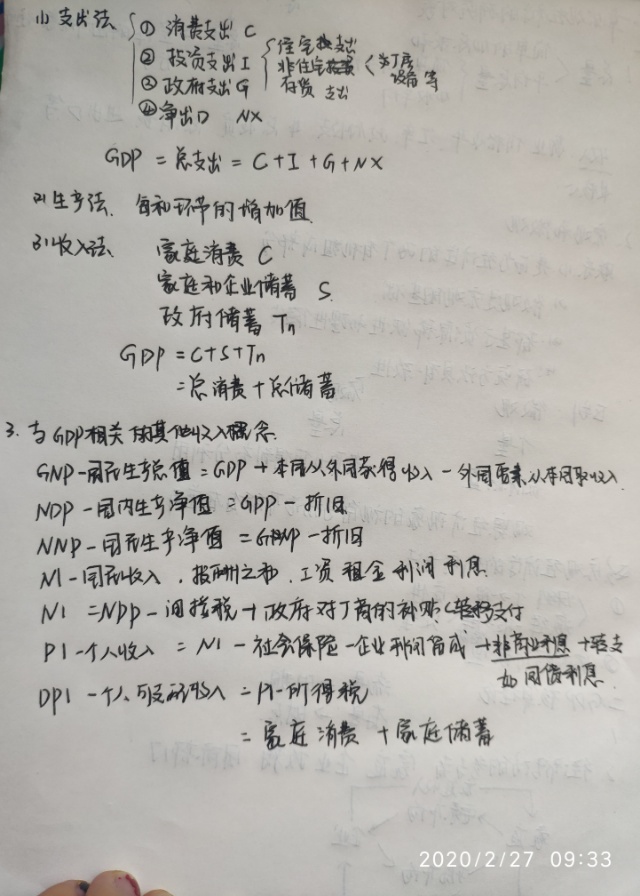 (1) 支出法 ① 消费支出 C
② 投资支出 I 住宅投支出
非住宅投资 为厂房
设备等
存货 支出
③ 政府支出 G
④ 净出口 NX
GDP = 总支出 = C + I + G + NX
(2) 生产法、 每和环节的增加值
(3) 收入法 家庭消费 C
家庭和企业储蓄 S
政府储蓄 Tn
GDP = C+S+Tn
= 总消费 + 总储蓄
3. 与GDP相关的其他收入概念
GNP - 国民生产总值 = GDP + 本国从外国获得收入 - 外国要素从本国取收入
NDP - 国内生产净值 = GDP - 折旧
NNP - 国民生产净值 = GNP - 折旧
NI - 国民收入 . 报酬之和 . 工资 租金 利润 利息
NI = NDP - 间接税 + 政府对厂商的补贴 转移支付
PI - 个人收入 = NI - 社会保险 - 企业利润留成 + 非商业利息 + 转支
如 国债利息
DPI - 个人可支配收入 = PI - 所得税
= 家庭消费 + 家庭储蓄
2020/2/27 09:33